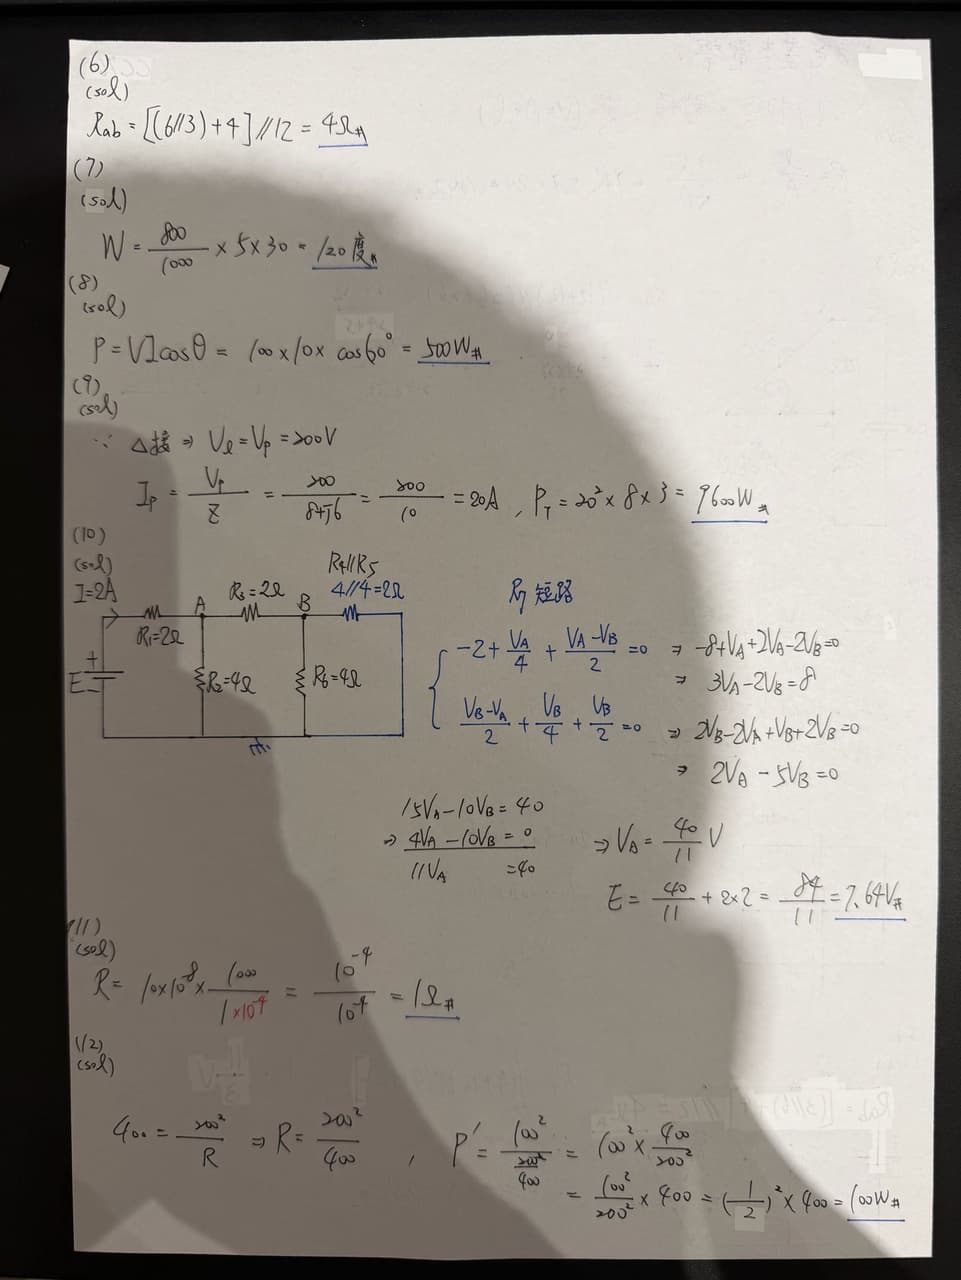 (6)
(sol)
Rab = [(6//3)+4]//12 = 4Ω#
(7)
(sol)
W = 800/1000 × 5 × 30 = 120度#
(8)
(sol)
P = VIcosθ = 100 × 10 × cos60° = 500W#
(9)
(sol)
∵ △接 ⇒ Vℓ = Vp = 200V
Ip = Vp/Z = 200/8+j6 = 200/10 = 20A , PT = 20² × 8 × 3 = 9600W#
(10)
(sol)
I=2A
R1=2Ω
A
R3=2Ω
B
R4//R5
4//4=2Ω
E
+
−
R2=4Ω
R6=4Ω
R7 短路
-2 + VA/4 + VA-VB/2 = 0 ⇒ -8+VA+2VA-2VB=0
⇒ 3VA-2VB=8
VB-VA/2 + VB/4 + VB/2 = 0 ⇒ 2VB-2VA+VB+2VB=0
⇒ 2VA-5VB=0
15VA-10VB=40
⇒ 4VA-10VB=0
11VA =40
⇒ VA = 40/11 V
E = 40/11 + 2×2 = 84/11 = 7.64V#
(11)
(sol)
R = 10×10⁻⁸ × 1000/1×10⁻⁴ = 10⁻⁴/10⁻⁴ = 1Ω#
(12)
(sol)
400 = 200²/R ⇒ R = 200²/400 , P' = 100²/(200²/400) = 100² × 400/200²
= 100²/200² × 400 = (1/2)² × 400 = 100W#